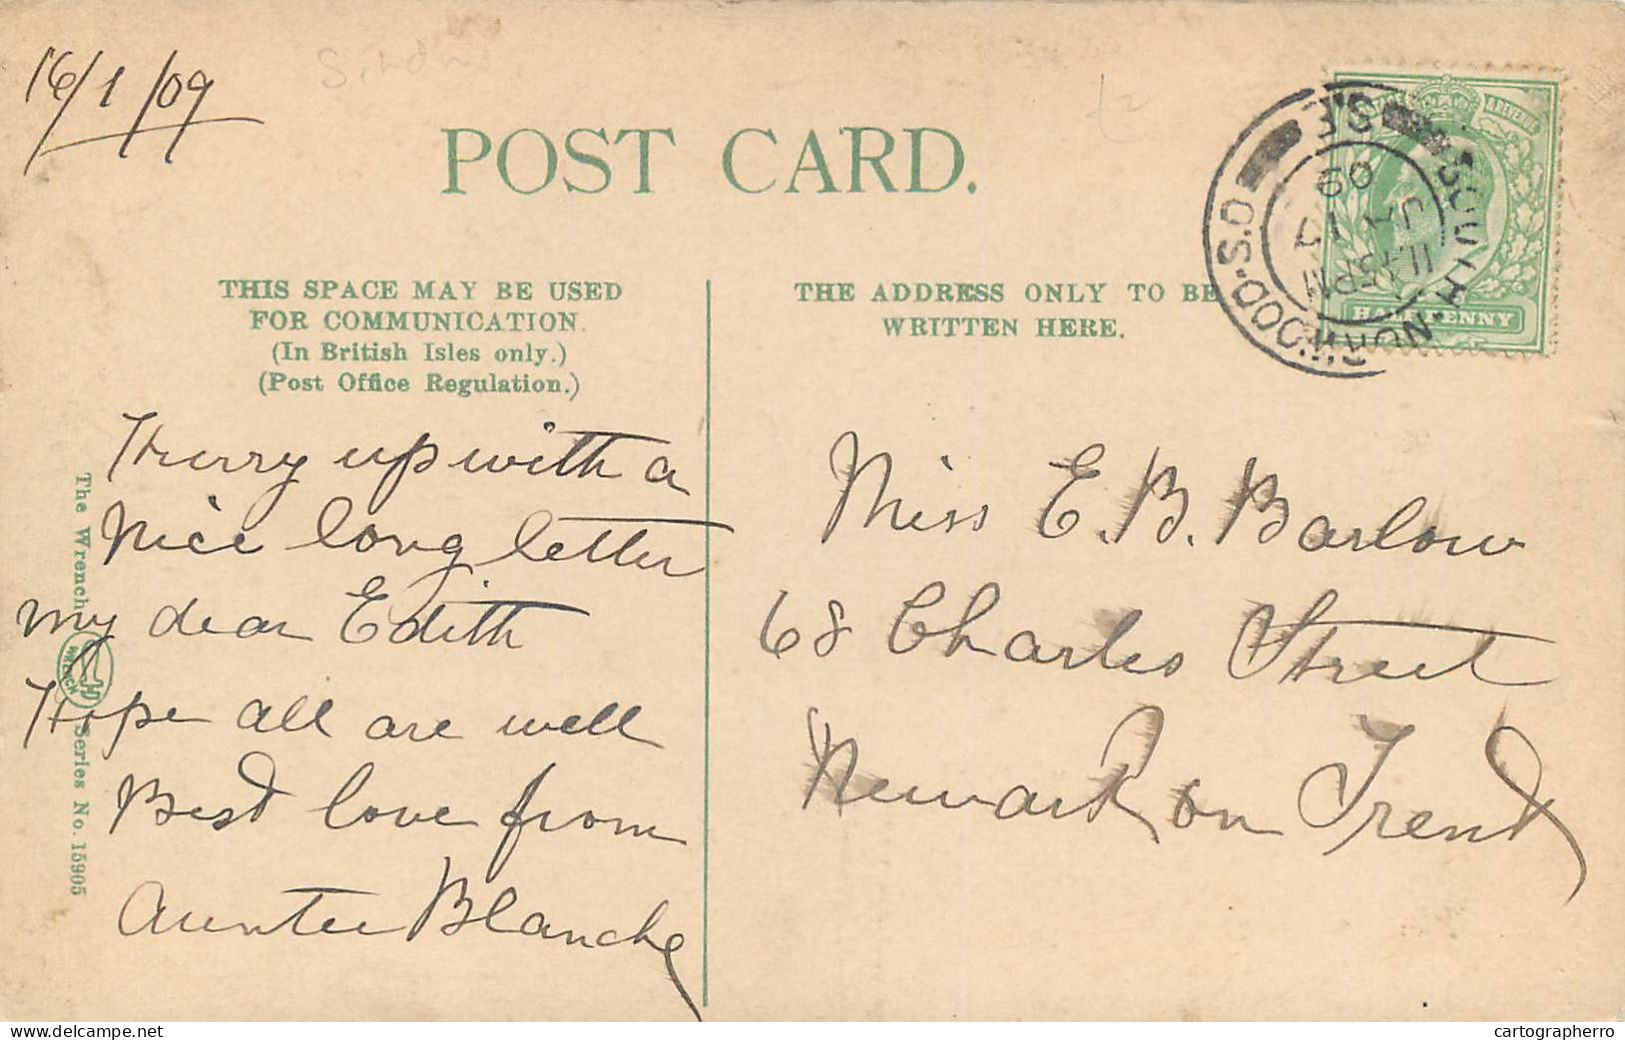 16/1/09
POST CARD.
THIS SPACE MAY BE USED
FOR COMMUNICATION.
(In British Isles only.)
(Post Office Regulation.)
THE ADDRESS ONLY TO BE
WRITTEN HERE.
SOUTH·NORWOOD·S.O
S.E
11.45PM
JA 17
09
HALFPENNY
Hurry up with a
Nice long letter
my dear Edith
Hope all are well
Best love from
Auntee Blanche
Miss E. B. Barlow
68 Charles Street
Newark on Trent
The Wrench Series No. 15905
WRENCH
delcampe.net
cartographerro